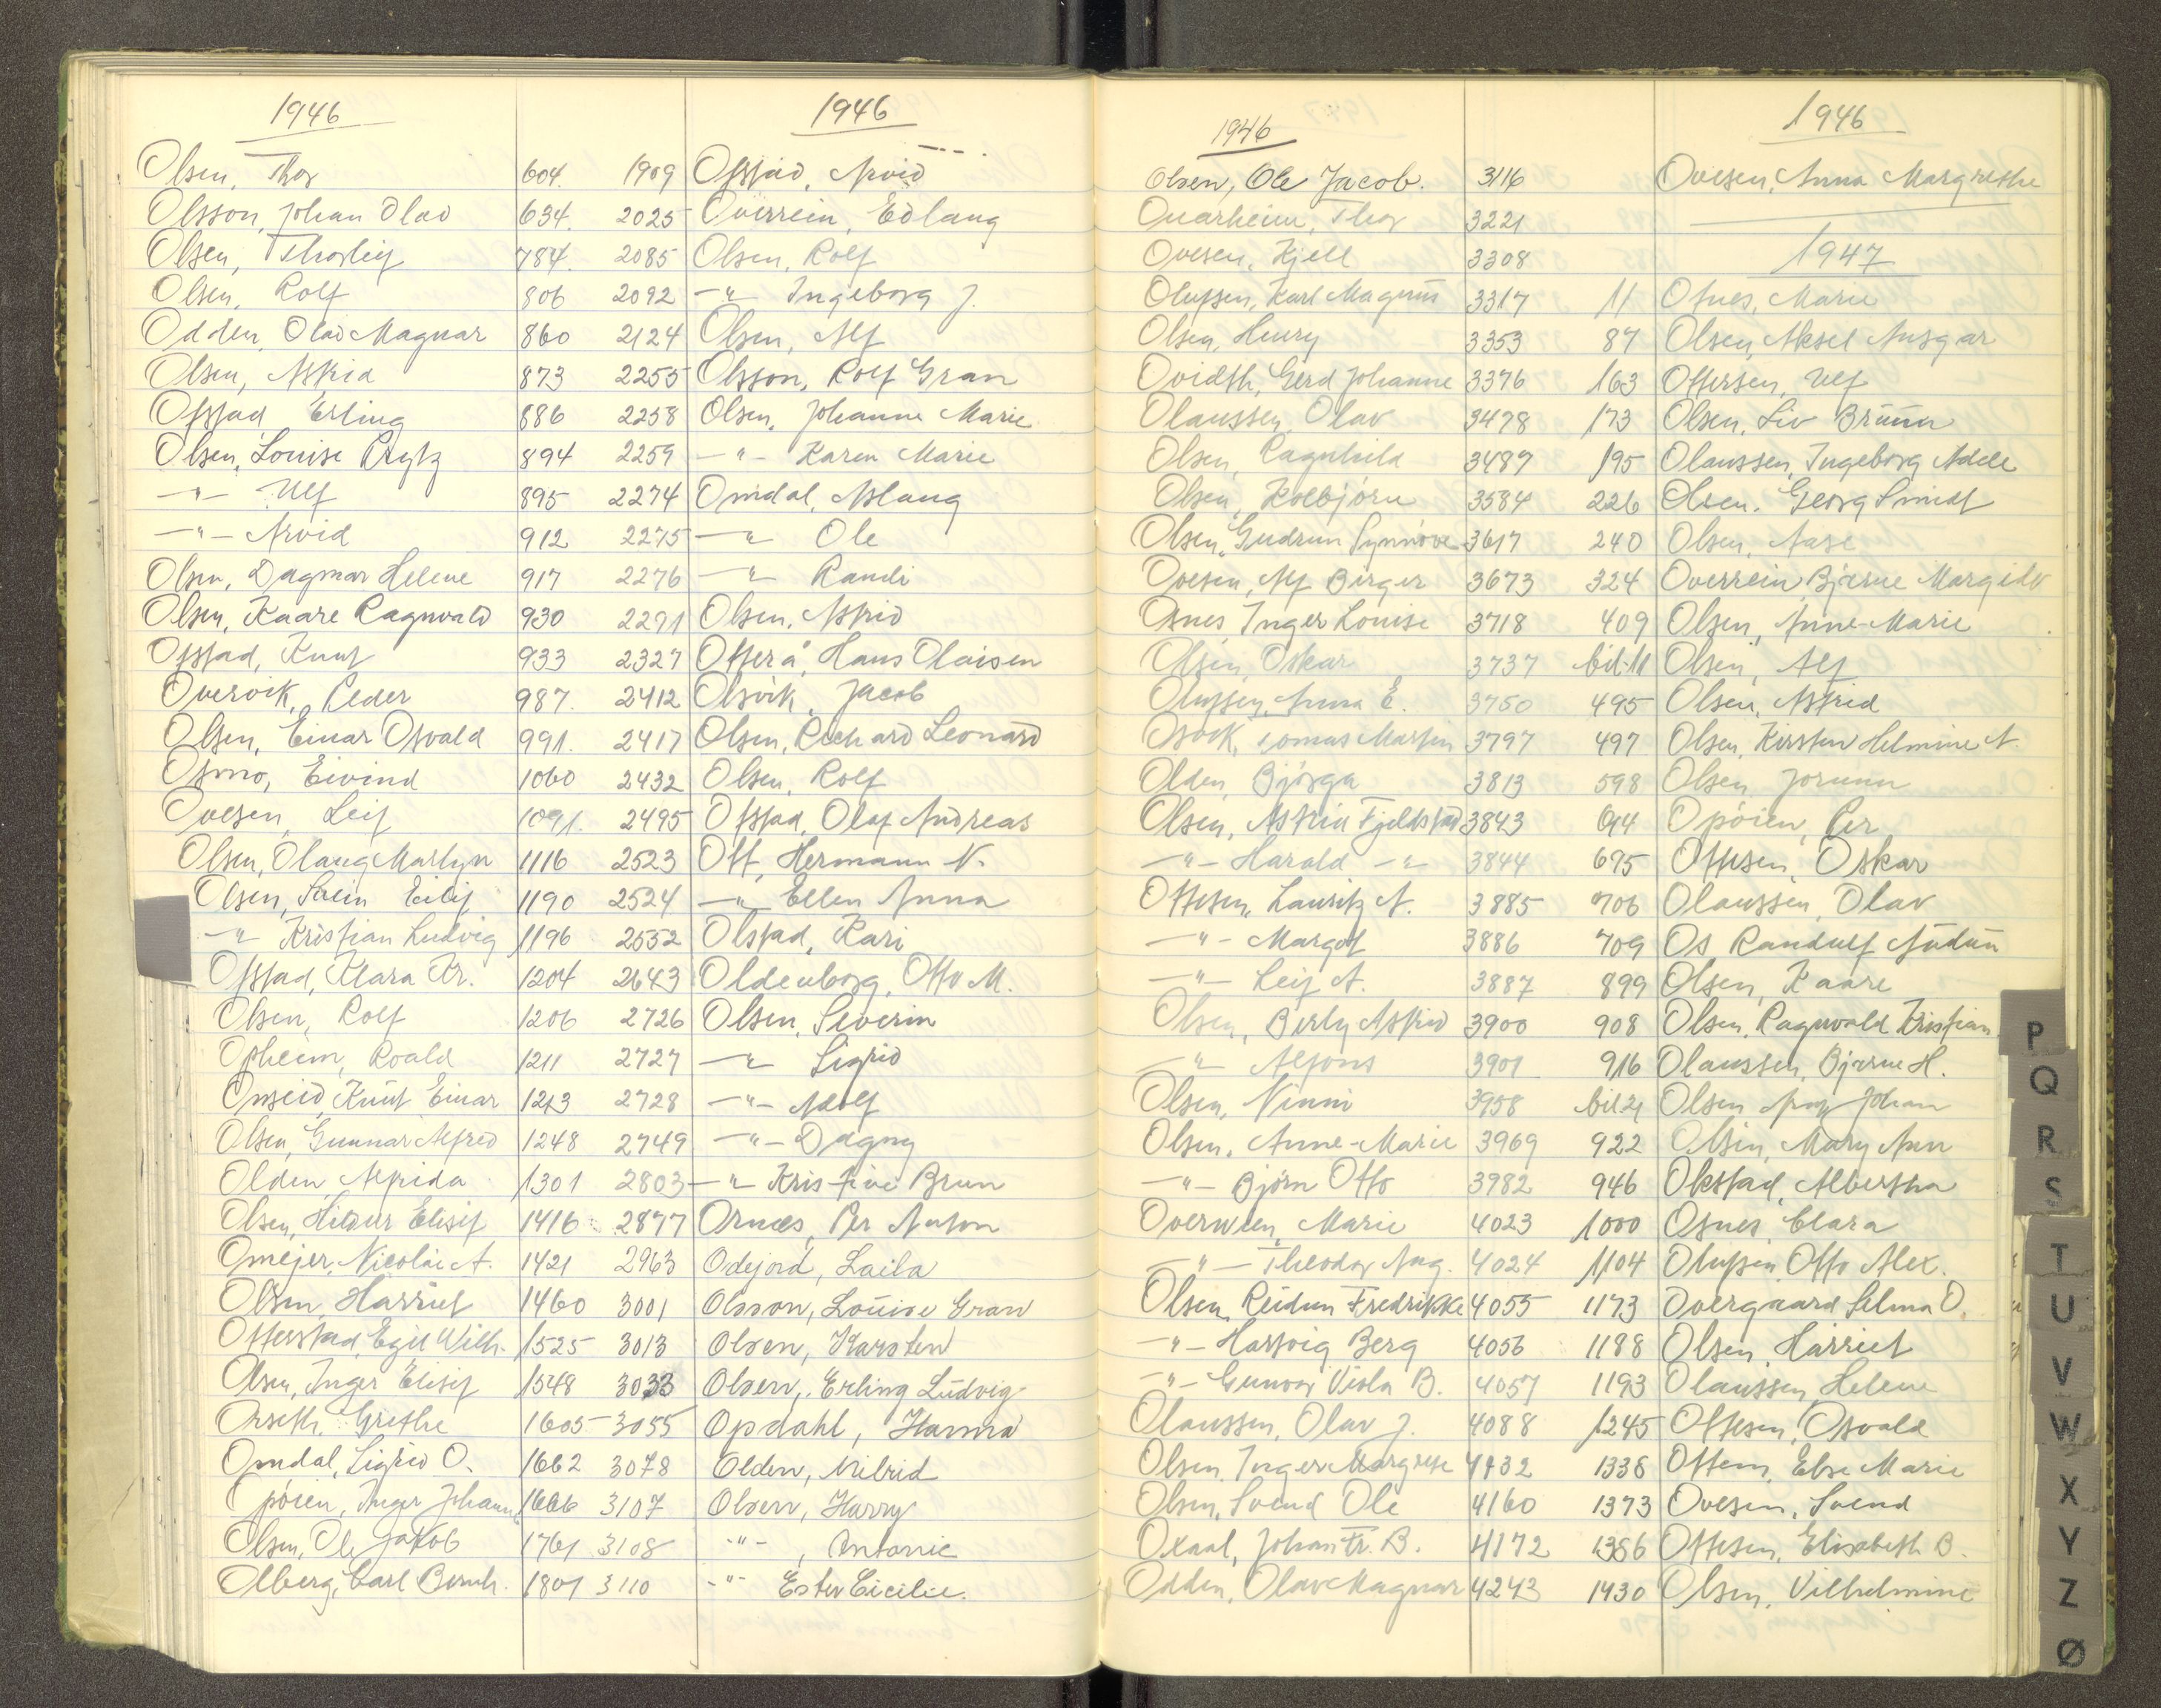 1946
Olsen, Thor 604.
Olsson, Johan Olav 634.
Olsen, Thorleif 784.
Olsen, Rolf 806
Odden, Olav Magnar 860
Olsen, Astrid 873
Ofstad Erling 886
Olsen, Louise Rytz 894
-"- Ulf 895
-"- Arvid 912
Olsen, Dagmar Helene 917
Olsen, Kaare Ragnvald 930
Ofstad, Knut 933
Overvik, Peder 987.
Olsen, Einar Osvald 991.
Osmo, Eivind 1060
Ovesen, Leif 1091.
Olsen, Olaug Marlyn 1116
Olsen, Svein Eilif 1190
-"- Kristian Ludvig 1196
Ofstad, Klara Kr. 1204
Olsen, Rolf 1206
Opheim, Roald 1211
Onseid, Knut Einar 1213
Olsen, Gunnar Alfred 1248
Olden, Alfrida 1301
Olsen, Hildur Elisif 1416
Omejer, Nicolai A. 1421
Olsen, Harriet 1460
Otterstad, Egil Wilh. 1525
Olsen, Inger Elisif 1548
Orseth, Grethe 1605
Omdal, Sigrid O. 1662
Opöien, Inger Johann 1666
Olsen, Ole Jakob 1761
Olberg, Carl Bernh. 1801
1946
1909 Ofstad, Arvid
2025 Overrein, Edlaug
2085 Olsen, Rolf
2092 -"- Ingeborg J.
2124 Olsen, Alf
2255 Olsson, Rolf Gran
2258 Olsen, Johanne Marie
2259 -"- Karen Marie
2274 Omdal, Aslaug
2275 -"- Ole
2276 -"- Randi
2291 Olsen, Astrid
2327 Otterå, Hans Olaisen
2412 Olsvik, Jacob
2417 Olsen, Richard Leonard
2432 Olsen, Rolf
2495 Ofstad, Olaf Andreas
2523 Ott, Hermann N.
2524 -"- Ellen Anna
2552 Olstad, Kari
2643 Oldenborg, Otto M.
2726 Olsen, Severin
2727 -"- Sigrid
2728 -"- Adolf
2749 -"- Dagny
2803 -"- Kristine Brun
2877 Ornæs, Per Anton
2963 Odejord, Laila
3001 Olsson, Louise Gran
3013 Olsen, Karsten
3033 Olsen, Erling Ludvig
3055 Opdahl, Hanna
3078 Olden, Milrid
3107 Olsen, Harry
3108 -"-, Antonie
3110 -"- Ester Cicilie.
1946
Olsen, Ole Jacob. 3116
Ouarheim, Thor 3221
Ovesen, Kjell 3308
Olufsen, Karl Magnus 3317
Olsen, Henry 3353
Ovidth, Gerd Johanne 3376
Olaussen, Olav 3478
Olsen, Ragnhild 3487
Olsen, Kolbjörn 3584
Olsen, Gudrun Synnöve 3617
Ovesen, Alf Birger 3673
Osnes, Inger Louise 3718
Olsen, Oskar 3737
Olufsen, Anna E. 3750
Osvik, Tomas Martin 3797
Olden, Björga 3813
Olsen, Astrid Fjeldstad 3843
-"- Harald -"- 3844
Ottesen, Lauritz A. 3885
-"- Margot 3886
-"- Leif A. 3887
Olsen, Berly Astrid 3900
-"- Alfons 3901
Olsen, Ninni 3958
Olsen, Anne-Marie 3969
-"- Björn Otto 3982
Overwien, Marie 4023
-"- Theodor Aug. 4024
Olsen, Reidun Fredrikke 4055
-"- Hartvig Berg 4056
-"- Gunvor Viola B. 4057
Olaussen, Olav J. 4088
Olsen, Inger Margrete 4132
Olsen, Svend Ole 4160
Oxaal, Johan Fr. B. 4172
Odden, Olav Magnar 4243
1946
Ovesen, Anna Margrethe
1947
11 Osnes, Marie
87 Olsen, Aksel Ansgar
163 Ottersen, Ulf
173 Olsen, Liv Brunn
195 Olaussen, Ingeborg Adele
226 Olsen, Georg Smidt
240 Olsen, Aase
324 Overrein, Bjarne Margido
409 Olsen, Anne-Marie
bil-11 Olsen, Alf
495 Olsen, Astrid
497 Olsen, Kirsten Helmine A.
598 Olsen, Jorunn
614 Opöien, Per
695 Ottesen, Oskar
706 Olaussen, Olav
709 Os Randulf Audun
899 Olsen, Kaare
908 Olsen, Ragnvald Kristian
916 Olaussen, Bjarne H.
bil 21 Olsen Johan
922 Olsen, Mary Ann
946 Okstad, Albertha
1000 Osnes, Clara
1104 Olufsen, Otto Alex.
1173 Overgaard Selma O.
1188 Olsen, Harriet
1193 Olaussen, Helene
1245 Ottesen, Osvald
1338 Ottem, Else Marie
1373 Ovesen, Svend
1386 Ottesen, Elisabeth B.
1430 Olsen, Vilhelmine
P
Q
R
S
T
U
V
W
X
Y
Z
Ø